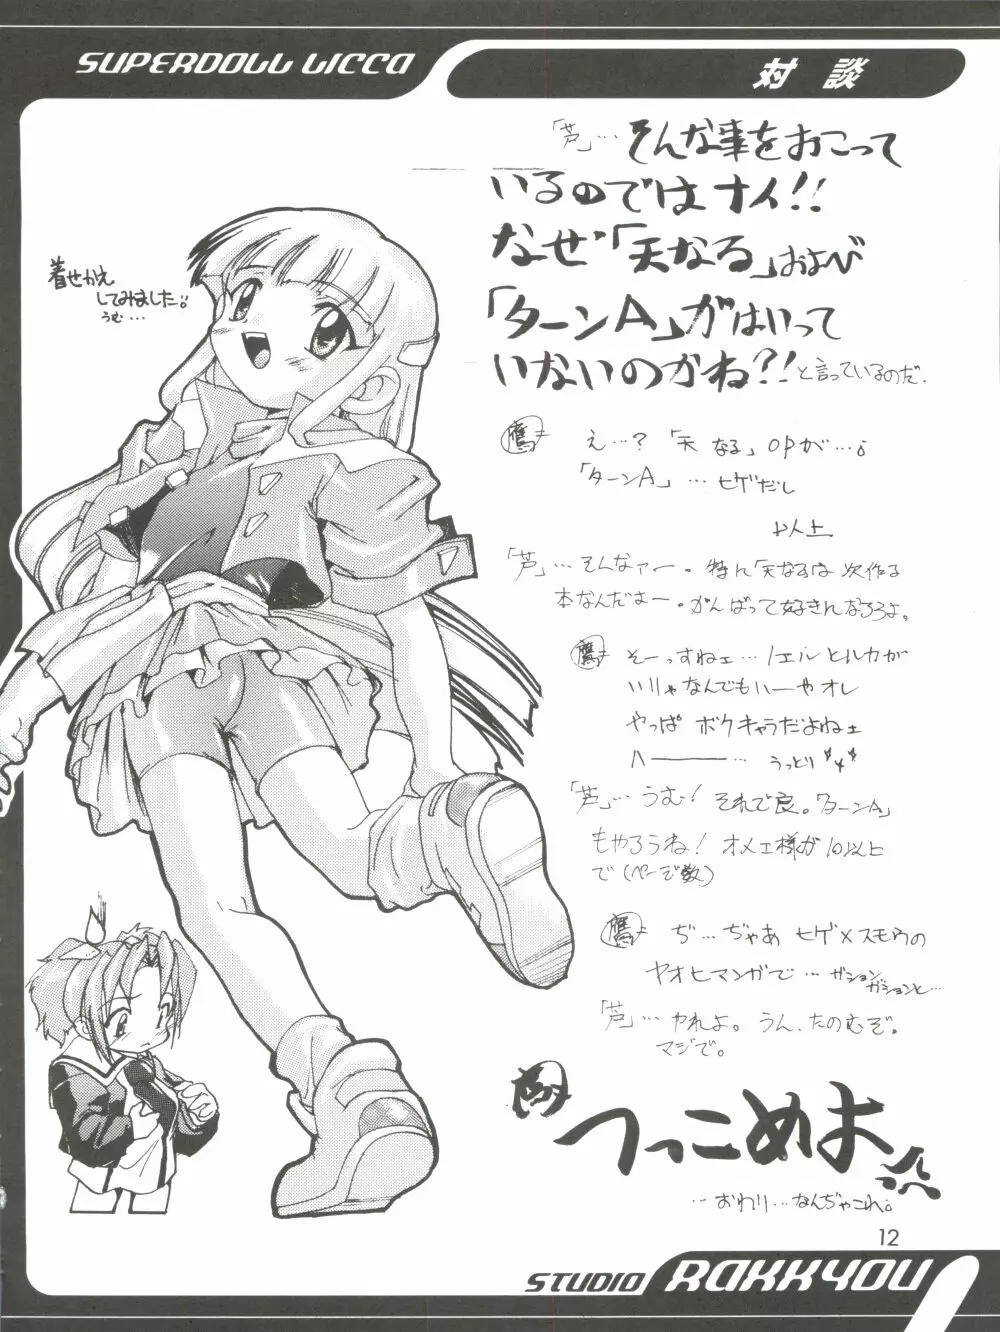 SUPERDOLL LICCA
対談
「芦」… そんな事をおこって
いるのではナイ!!
なぜ「天なる」および
「ターンA」がはいって
いないのかね?!と言っているのだ.
着せかえ
してみました。
うむ…
鷹 え…?「天なる」OPが…。
「ターンA」… ヒゲだし
以上
「芦」…そんなァー。特に天なるは次作る
本なんだよー。がんばって好きになろうよ。
鷹 そーっすねェ…ノエルとルカが
いりゃなんでもいーやオレ
やっぱ ボクキャラだよねェ
ハ――… うっとり
「芦」… うむ! それで良。「ターンA」
もやろうね! オメェ様が10以上
で(ページ数)
鷹 ぢ…ぢゃあ ヒゲ×スモウの
ヤオヒマンガで… ガション
ガションと…
「芦」… やれよ。うん、たのむぞ。
マジで。
鷹 つっこめよ
…おわり…なんぢゃこれ。
12
STUDIO RAKKYOU